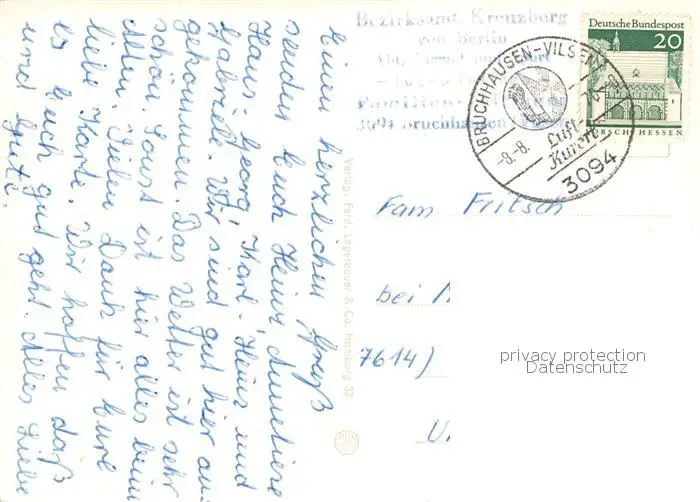 Einen herzlichen Gruß
senden Euch Heinz Anneliese
Hans-Georg, Karl-Heinz und
Gabriele. Wir sind gut hier an-
gekommen. Das Wetter ist sehr
schön. Sonst ist hier alles beim
Alten. Vielen Dank für Eure
liebe Karte. Wir hoffen daß
es Euch gut geht. Alles Liebe
und Gute.
Verlag: Ferd. Lagerbauer & Co. Hamburg 33
Bezirksamt Kreuzberg
von Berlin
Familien-
3094 Bruchhausen
BRUCHHAUSEN-VILSEN
-8.-8.
Luft-
Kurort
3094
Deutsche Bundespost
20
LORSCH/HESSEN
Fam Fritsch
bei
7614)
privacy protection
Datenschutz